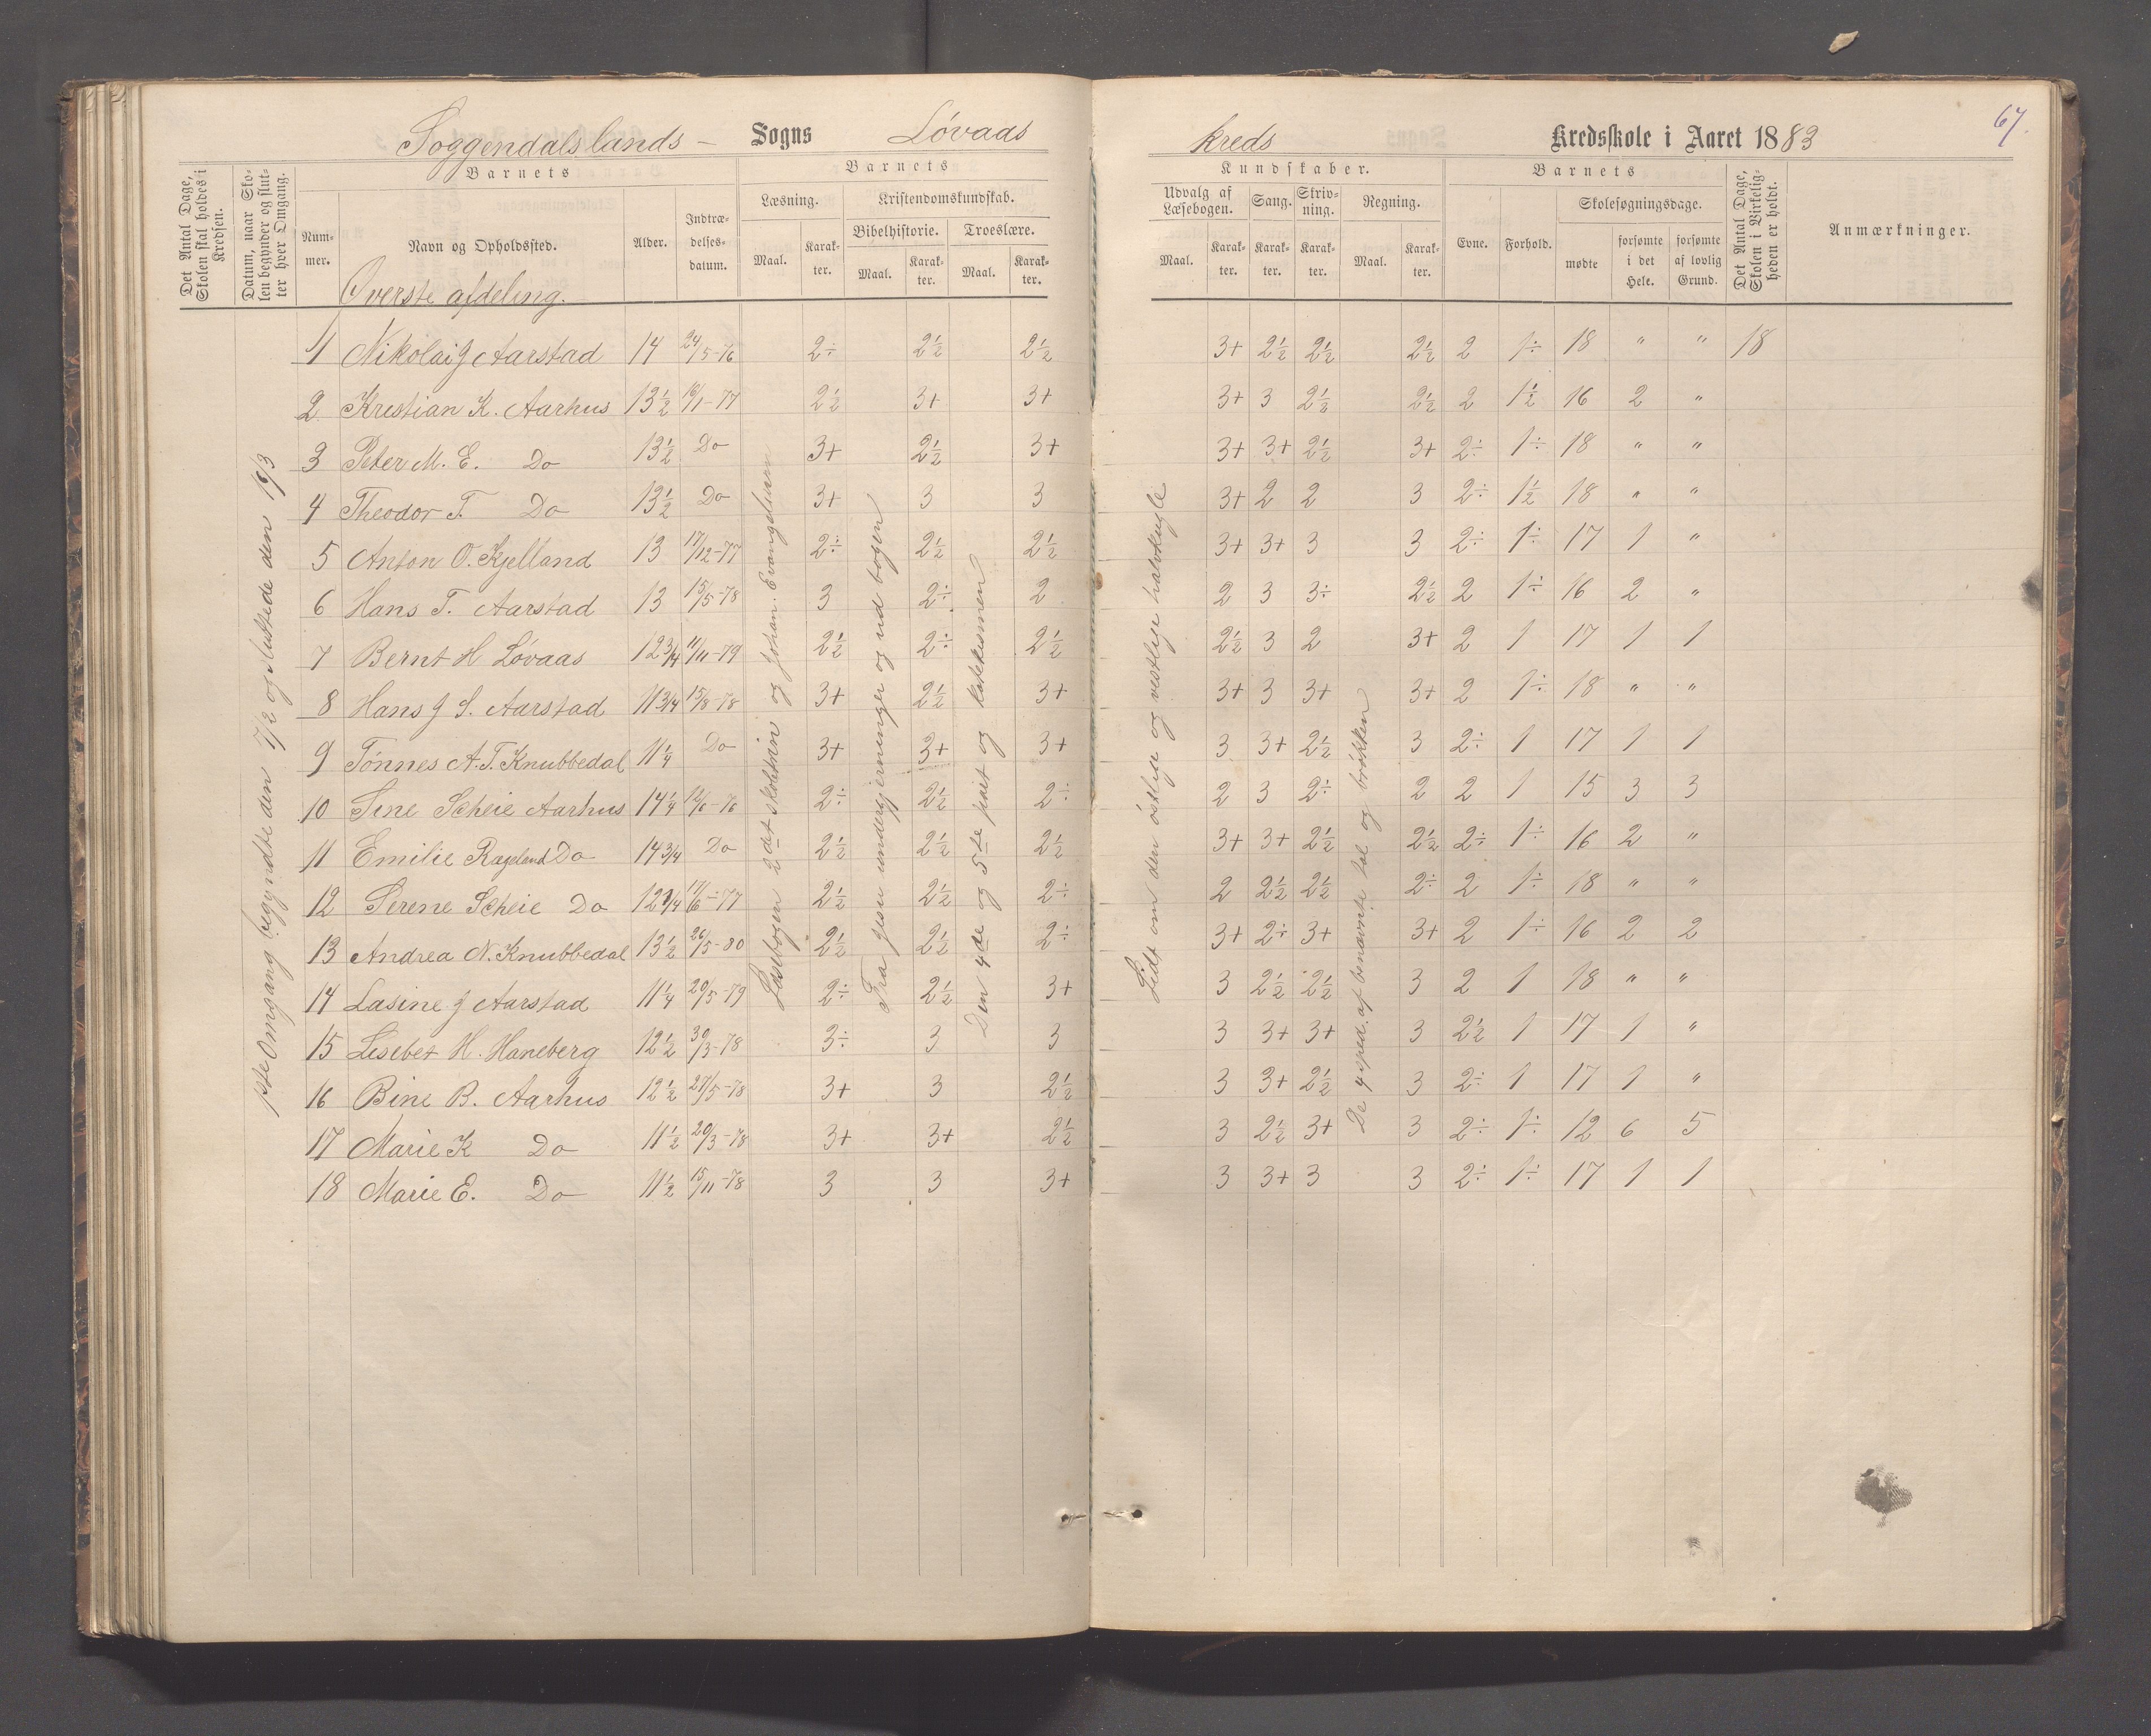 67.
Soggendalslands – Sogns Lóvaas
kreds Kredsskole i Aaret 1883
Det Antal Dage, Skolen skal holdes i Kredsen.
Datum, naar Skolen begynder og slutter hver Omgang.
Barnets
Nummer.
Navn og Opholdssted.
Alder.
Indtrædelsesdatum.
Barnets
Læsning.
Maal.
Karakter.
Kristendomskundskab.
Bibelhistorie.
Maal.
Karakter.
Troeslære.
Maal.
Karakter.
Kundskaber.
Udvalg af Læsebogen.
Maal.
Karakter.
Sang.
Karakter.
Skrivning.
Karakter.
Regning.
Maal.
Karakter.
Barnets
Evne.
Forhold.
Skolesøgningsdage.
mødte
forsømte i det Hele.
forsømte af lovlig Grund.
Det Antal Dage, Skolen i Virkeligheden er holdt.
Anmærkninger.
Øverste afdeling.
1ste Omgang begyndte den 7/2 og sluttede den 19/3
Læsebogen 2det skoletrin og Johan. Evangelium
Fra Jesu undergjerninger og ud bogen
Den 4de og 5te part og katekismen
Lidt om den östlige og vestlige halvkugle
De 4 sped. af benævnte tal og brökken
1 Nikolai J Aarstad 14 24/5-76 2÷ 2½ 2½ 3+ 2½ 2½ 2½ 2 1÷ 18 " " 18
2 Kristian K. Aarhus 13½ 16/1-77 2½ 3+ 3+ 3+ 3 2½ 2½ 2 1½ 16 2 "
3 Peter M. E. Do 13½ Do 3+ 2½ 3+ 3+ 3+ 2½ 3+ 2÷ 1÷ 18 " "
4 Theodor T. Do 13½ Do 3+ 3 3 3+ 2 2 3 2÷ 1½ 18 " "
5 Anton O. Kjelland 13 17/12-77 2÷ 2½ 2½ 3+ 3+ 3 3 2÷ 1÷ 17 1 "
6 Hans T. Aarstad 13 15/5-78 3 2÷ 2 2 3 3÷ 2½ 2 1÷ 16 2 "
7 Bernt H Lóvaas 12¾ 11/11-79 2½ 2÷ 2½ 2½ 3 2 3+ 2 1 17 1 1
8 Hans J S. Aarstad 11¾ 15/8-78 3+ 2½ 3+ 3+ 3 3+ 3+ 2 1÷ 18 " "
9 Tónnes A. T. Knubbedal 11¼ Do 3+ 3+ 3+ 3 3+ 2½ 3 2÷ 1 17 1 1
10 Sine Scheie Aarhus 14¼ 12/6-76 2÷ 2½ 2÷ 2 3 2÷ 2 2 1 15 3 3
11 Emilie Rageland Do 14¾ Do 2½ 2½ 2½ 3+ 3+ 2½ 2½ 2÷ 1÷ 16 2 "
12 Serene Scheie Do 12¼ 17/6-77 2½ 2½ 2÷ 2 2½ 2½ 2÷ 2 1÷ 18 " "
13 Andrea N. Knubbedal 13½ 26/5-80 2½ 2½ 2÷ 3+ 2÷ 3+ 3+ 2 1÷ 16 2 2
14 Lasine J Aarstad 11¼ 20/5-79 2÷ 2½ 3+ 3 2½ 2½ 3 2 1 18 " "
15 Lisebet H. Haneberg 12½ 30/3-78 3÷ 3 3 3 3+ 3+ 3 2½ 1 17 1 "
16 Bine B. Aarhus 12½ 27/5-78 3+ 3 2½ 3 3+ 2½ 3 2÷ 1 17 1 "
17 Marie K Do 11½ 20/3-78 3+ 3+ 2½ 3 2½ 3+ 3 2÷ 1÷ 12 6 5
18 Marie E. Do 11½ 15/11-78 3 3 3+ 3 3+ 3 3 2÷ 1÷ 17 1 1